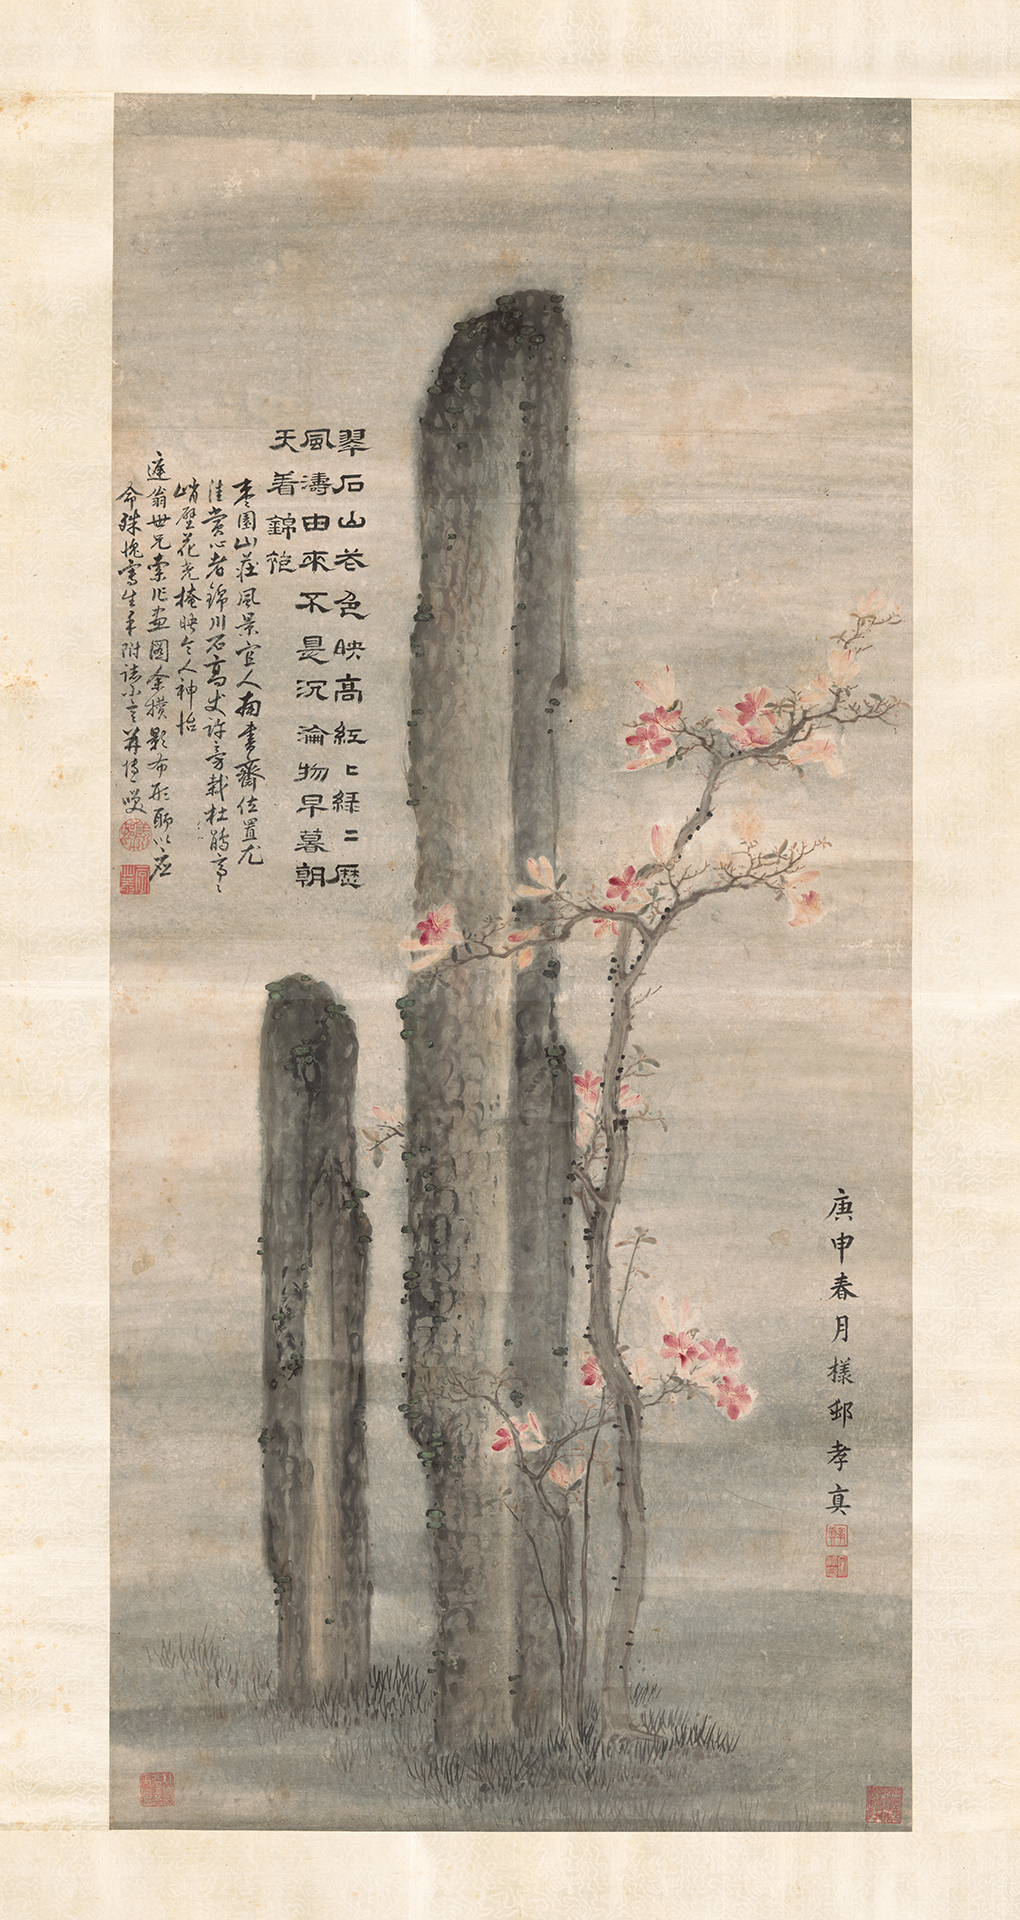 翠石山花色映高紅〻綠〻歷
風濤由來不是沉淪物早暮朝
天着錦袍
棗園山莊風景宜人南書齋位置尤
佳賞心者錦川石高丈許旁栽杜鵑亭〻
峭壁花光掩映令人神怡
蓮翁世兄索作畫圖余橫影布形聊以應
命殊愧寫生手附誌小言并博一噱
庚申春月樣邨孝真